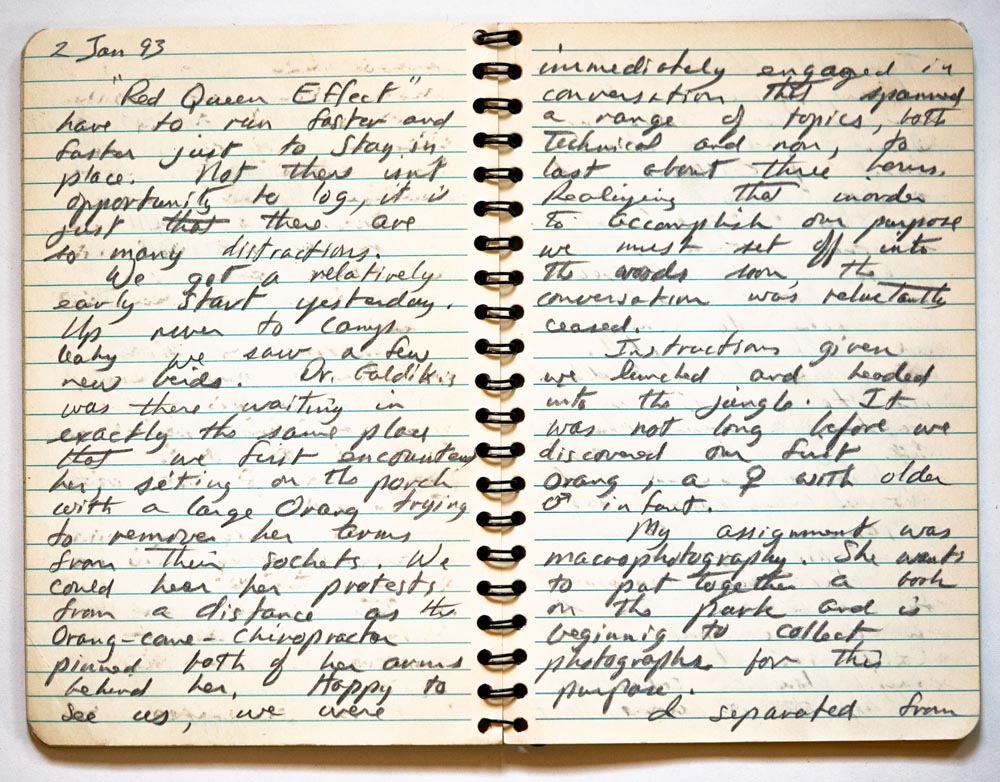 2 Jan 93
"Red Queen Effect"
have to run faster and
faster just to stay in
place. Not there isn't
opportunity to log, it is
just that there are
so many distractions.
We got a relatively
early start yesterday.
Up river to camp
leaky we saw a few
new birds. Dr. Galdikis
was there waiting in
exactly the same place
that we first encountered
her, seting on the porch
with a large Orang trying
to remover her arms
from their sockets. We
could hear her protests
from a distance as the
Orang-come-chiropractor
pinned both of her arms
behind her. Happy to
see us, we were
immediately engaged in
conversation that spanned
a range of topics, both
technical and non, to
last about three hours.
Realizing that inorder
to accomplish our purpose
we must set off into
the woods soon, the
conversation was reluctantly
ceased.
Instructions given
we lunched and headed
into the jungle. It
was not long before we
discovered our first
orang, a ♀ with older
♂ infant.
My assignment was
macrophotography. She wants
to put together a book
on the park and is
beginnig to collect
photographs for this
purpose.
I separated from